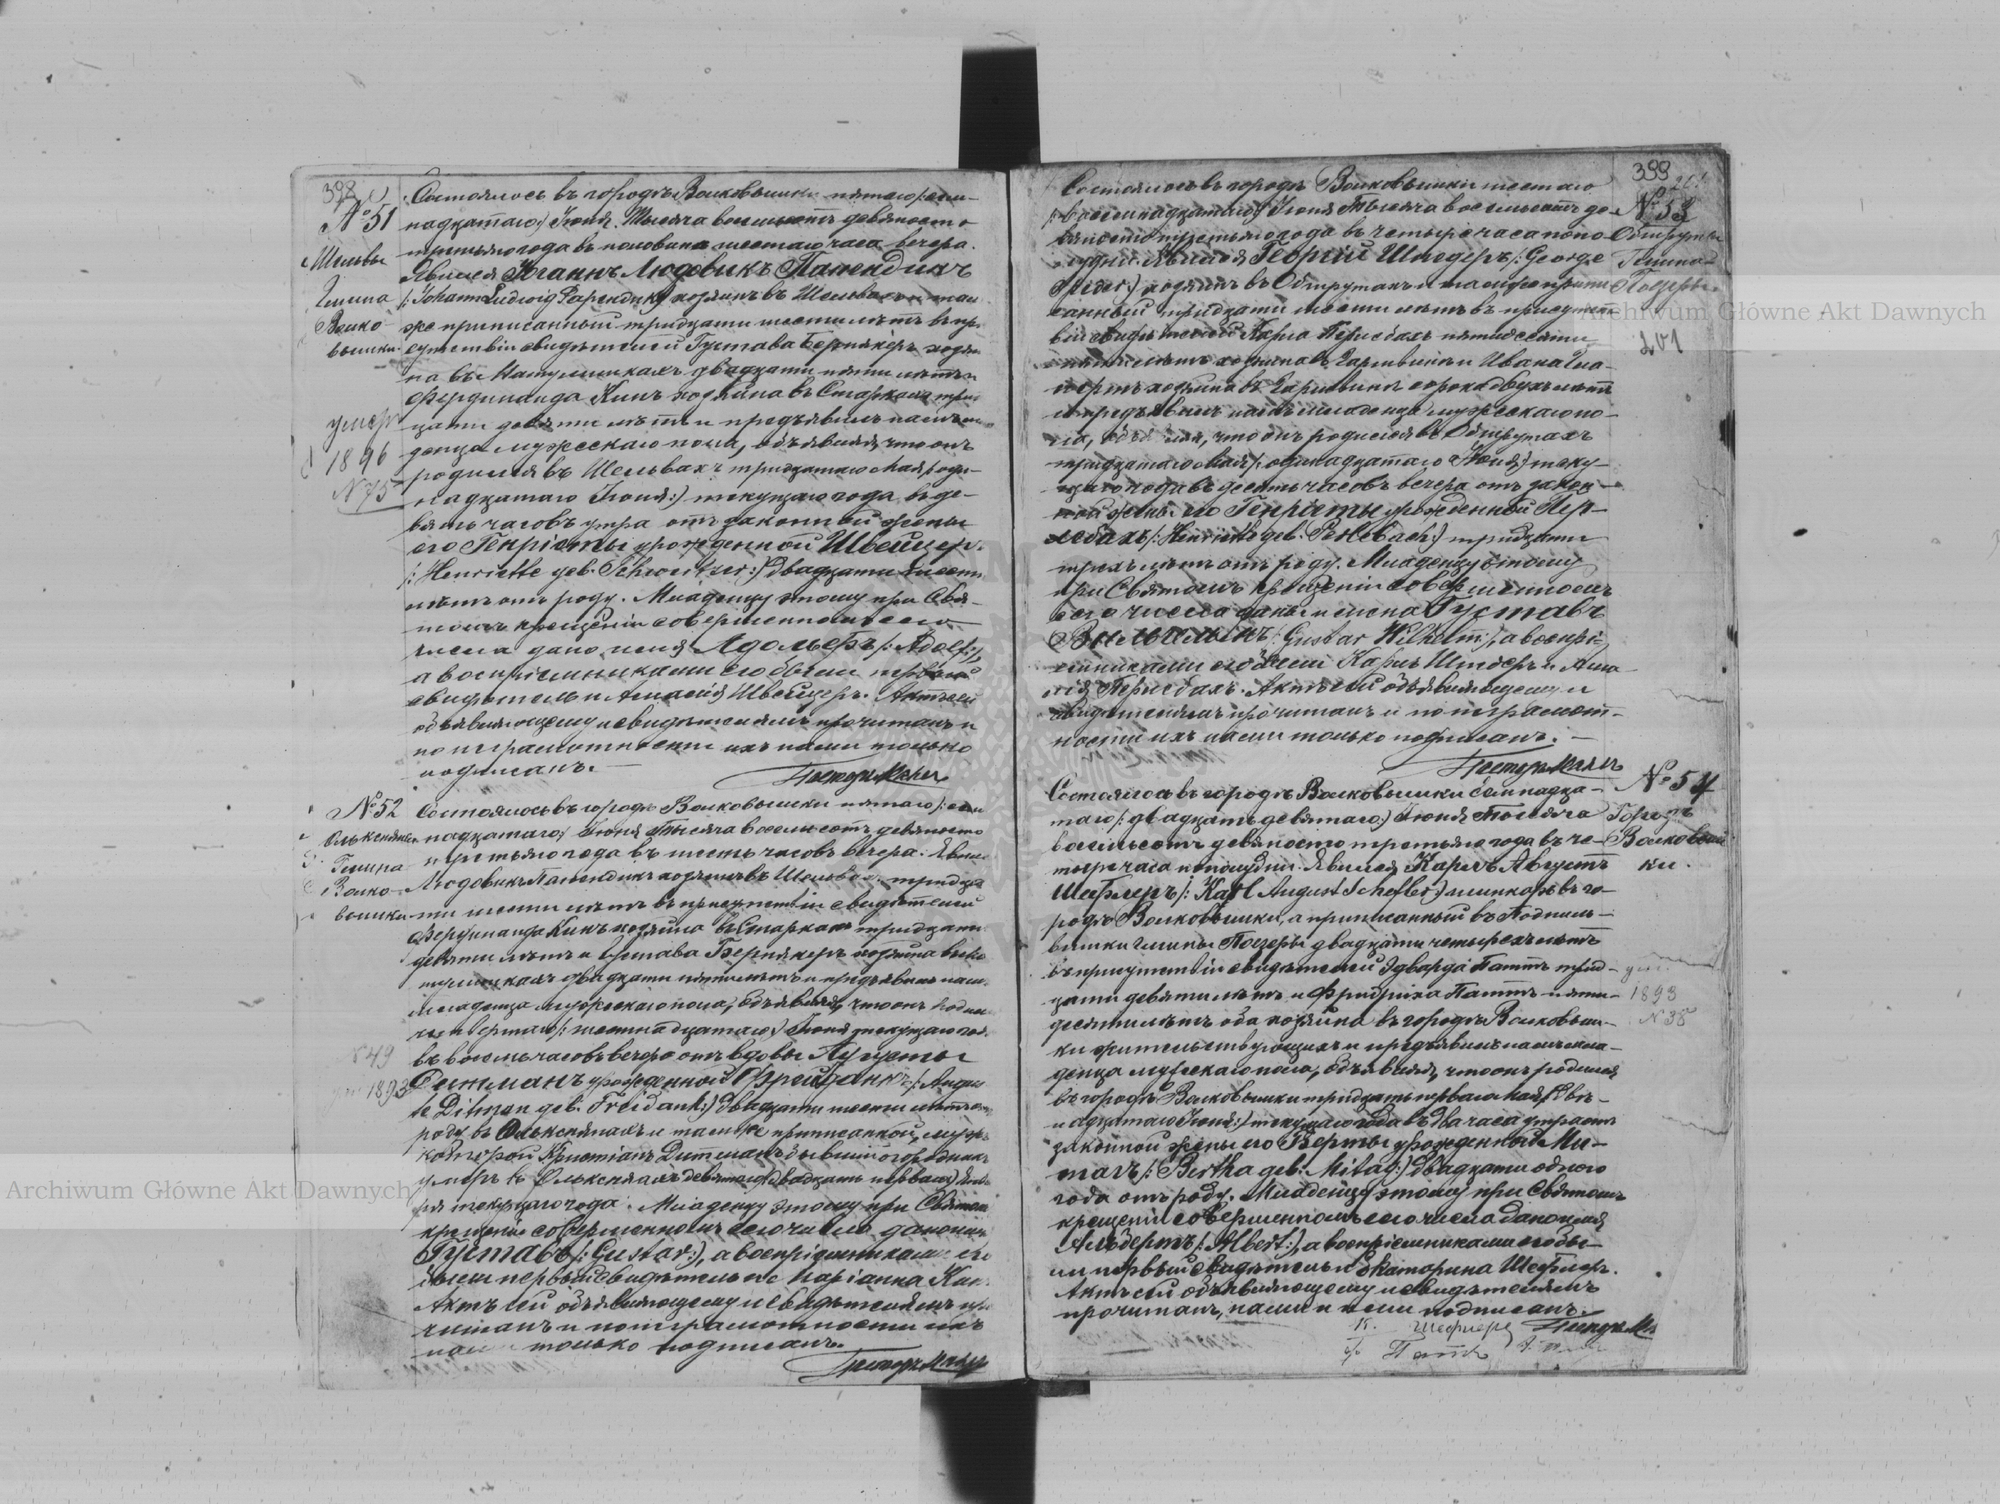 398
№ 51
Шельвы
Гмина
Волко-
вышки.
умеръ
1896
N 75
Состоялось въ городѣ Волковышки пятаго/:сем-
надцатаго:/ Іюня Тысяча восемьсотъ девяносто
третьяго года въ половинѣ шестаго часа вечера.
Явился Іоганнъ Людовикъ Папендикъ
/:Johann Ludwig Papendik:/ хозяинъ въ Шельвахъ и там
же приписанный тридцати шести лѣтъ въ при
сутствіи свидѣтелей Густава Бернекеръ хозяи
на въ двадцати пяти лѣтъ и
Фердинанда Кинъ хозяина въ Старкахъ трид
цати девяти лѣтъ и предъявилъ намъ мла
денца мужескаго пола, объявляя, что онъ
родился въ Шельвахъ тридцатаго Мая/:оди-
надцатаго Іюня:/ текущаго года въ де-
вять часовъ утра отъ законной жены
его Генріэты урожденной Швейцеръ
/:Henriette geb. Schweitzer:/ двадцати шести
лѣтъ отъ роду. Младенцу этому при Свя-
томъ крещеніи совершенномъ сего
числа дано имя Адольфъ/:Adolf:/,
а воспріемниками его были первый
свидѣтель и Амалія Швейцеръ. Актъ сей
объявляющему и свидѣтелямъ прочитанъ и
по неграмотности ихъ нами только
подписанъ.
Пасторъ
№ 52
Гмина
Волко-
вышки
N 49
1893
Состоялось въ городѣ Волковышки пятаго/:сем
надцатаго:/ Іюня Тысяча восемьсотъ девяносто
третьяго года въ шесть часовъ вечера. Явился
Людовикъ Папендикъ хозяинъ въ Шельвахъ тридца
ти шести лѣтъ въ присутствіи свидѣтелей
Фердинанда Кинъ хозяина въ Старкахъ тридцати
девяти лѣтъ и Густава Бернекеръ хозяина въ
двадцати пяти лѣтъ и предъявилъ намъ
младенца мужескаго пола, объявляя, что онъ родил
ся четвертаго/:шестнадцатаго:/ Іюня текущаго года
въ восемь часовъ вечера отъ вдовы Аугусты
Дитманъ урожденной Фрейданкъ/:Augus
te Ditman geb. Freidank:/ двадцати шести лѣтъ отъ
роду въ и тамже приписанной, мужъ
которой Христіанъ Дитманъ бывшій огородникъ
умеръ въ девятаго/:двадцать перваго:/ Янв
ря текущаго года. Младенцу этому при Святомъ
крещеніи совершенномъ сего числа дано имя
Густавъ/:Gustav:/, а воспріемниками его
были первый свидѣтель и Маріанна Кин
Актъ сей объявляющему и свидѣтелямъ про
читанъ и по неграмотности ихъ
нами только подписанъ.
Пасторъ
399
№ 53
Обшруты
Гмина
Поезеры
201
Состоялось въ городѣ Волковышки шестаго
/:восемнадцатаго:/ Іюня Тысяча восемьсотъ де-
вяносто третьяго года въ четыре часа попо-
лудни. Явился Георгій Шредеръ/:George
хозяинъ въ Обшрутахъ и тамже припи
санный тридцати шести лѣтъ въ присутст
віи свидѣтелей Карла Перлебахъ пятидесяти
лѣтъ хозяина въ и Ивана
хозяина въ сорока двухъ лѣтъ
и предъявилъ намъ младенца мужескаго по-
ла, объявляя, что онъ родился въ Обшрутахъ
тридцатаго Мая/:одинадцатаго Іюня:/ теку-
щаго года въ десять часовъ вечера отъ закон-
ной жены его Генріэты урожденной Пер-
лебахъ/:Henriette geb. Perlebach:/ тридцати
трехъ лѣтъ отъ роду. Младенцу этому
при Святомъ крещеніи совершенномъ
сего числа даны имена Густавъ
Вильгельмъ/:Gustav Wilhelm:/, а воспрі-
емниками его были Карлъ Шредеръ и Ама-
лія Перлебахъ. Актъ сей объявляющему и
свидѣтелямъ прочитанъ и по неграмот-
ности ихъ нами только подписанъ.
Пасторъ
№ 54
Городъ
Волковыш
ки.
1893
N 38
Состоялось въ городѣ Волковышки семнадца-
таго/:двадцать девятаго:/ Іюня Тысяча
восемьсотъ девяносто третьяго года въ че-
тыре часа пополудни. Явился Карлъ Августъ
Шефлеръ/:Karl August Schefler:/ шинкарь въ го-
родѣ Волковышки, а приписанный въ
гмины Поезеры двадцати четырехъ лѣтъ
въ присутствіи свидѣтелей Эдварда Паттъ трид-
цати девяти лѣтъ и Фридриха Паттъ пяти-
десяти лѣтъ оба хозяина въ городѣ Волковыш-
ки жительствующихъ и предъявилъ намъ мла-
денца мужескаго пола, объявляя, что онъ родился
въ городѣ Волковышки тридцать перваго Мая/:двѣ-
надцатаго Іюня:/ текущаго года въ два часа утра отъ
законной жены его Берты урожденной Ми-
тагъ/:Bertha geb. Mitag:/ двадцати одного
года отъ роду. Младенцу этому при Святомъ
крещеніи совершенномъ сего числа дано имя
Альбертъ/:Albert:/, а воспріемниками его бы-
ли первый свидѣтель и Екатерина Шефлеръ.
Актъ сей объявляющему и свидѣтелямъ
прочитанъ, нами и ними подписанъ.
К. Шефлеръ Пасторъ
Ф Паттъ
Archiwum Główne Akt Dawnych
Archiwum Główne Akt Dawnych